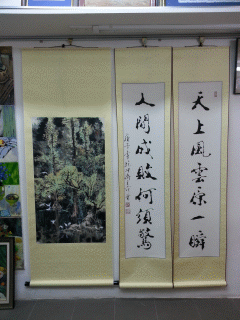 天上風雲原一瞬
人間成敗何須驚